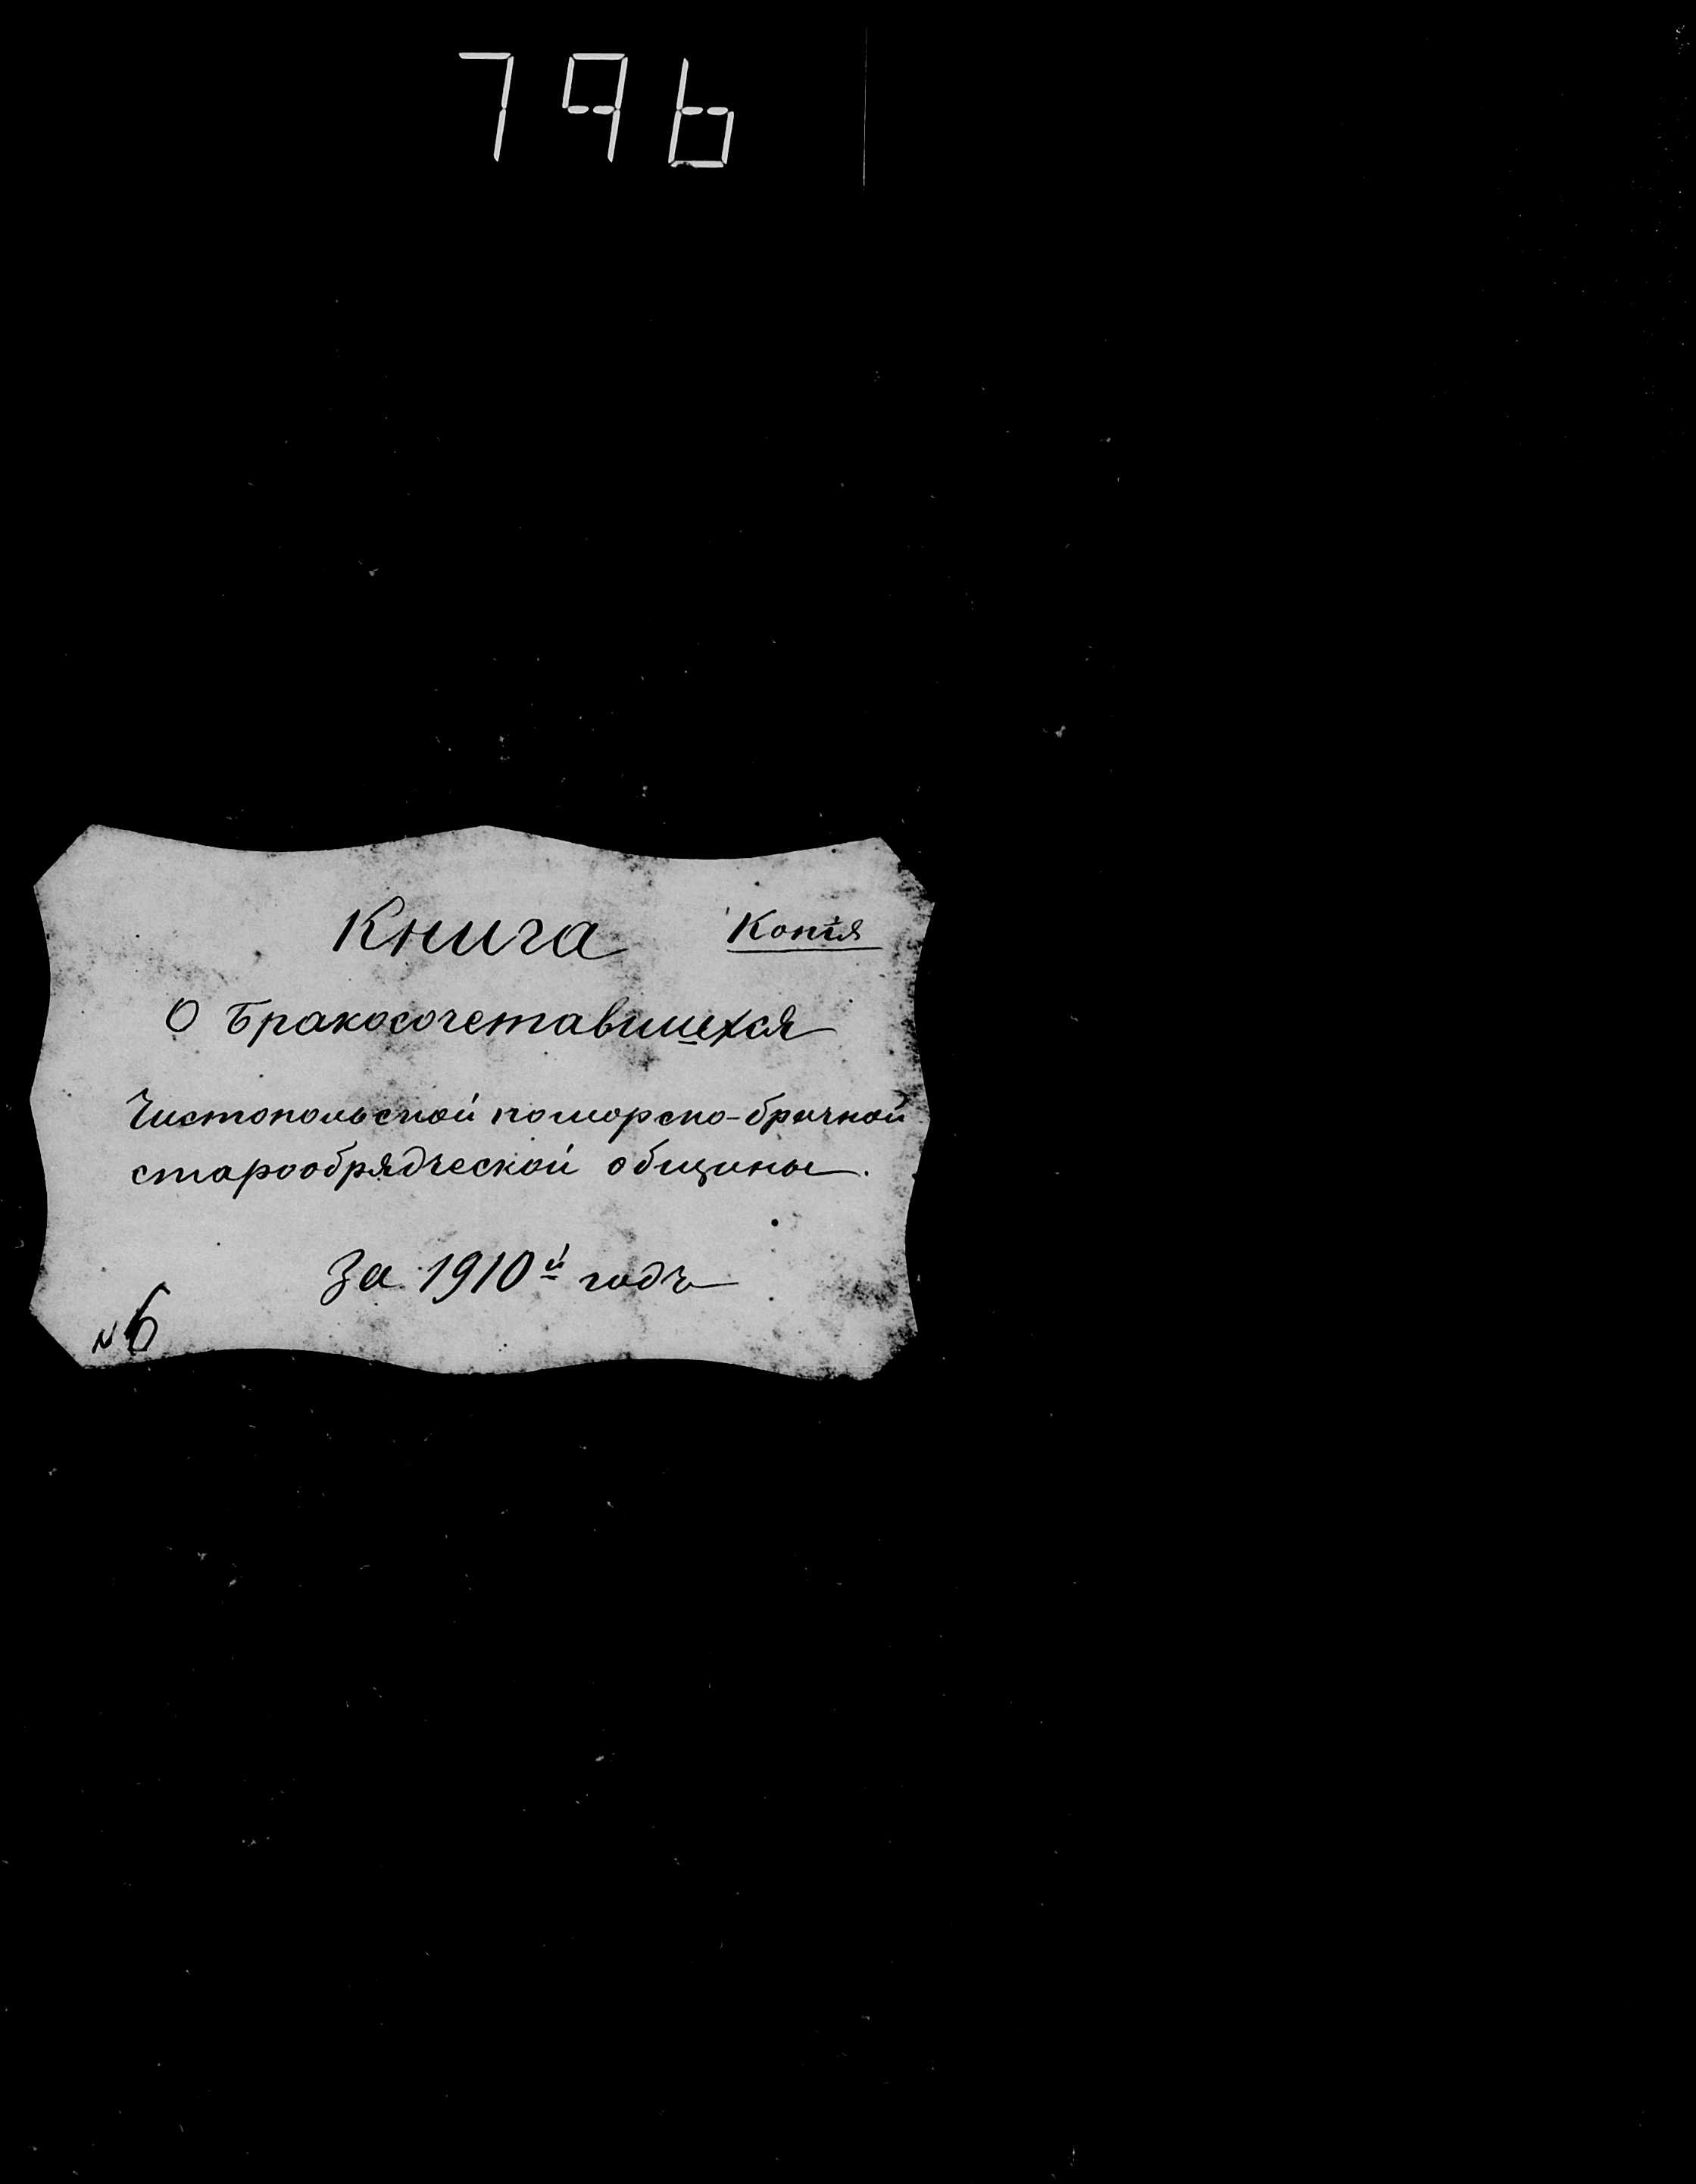 796
Книга Копія
О Бракосочетавшихся
Чистопольской поморско-брачной
старообрядческой общины.
За 1910й годъ
№6